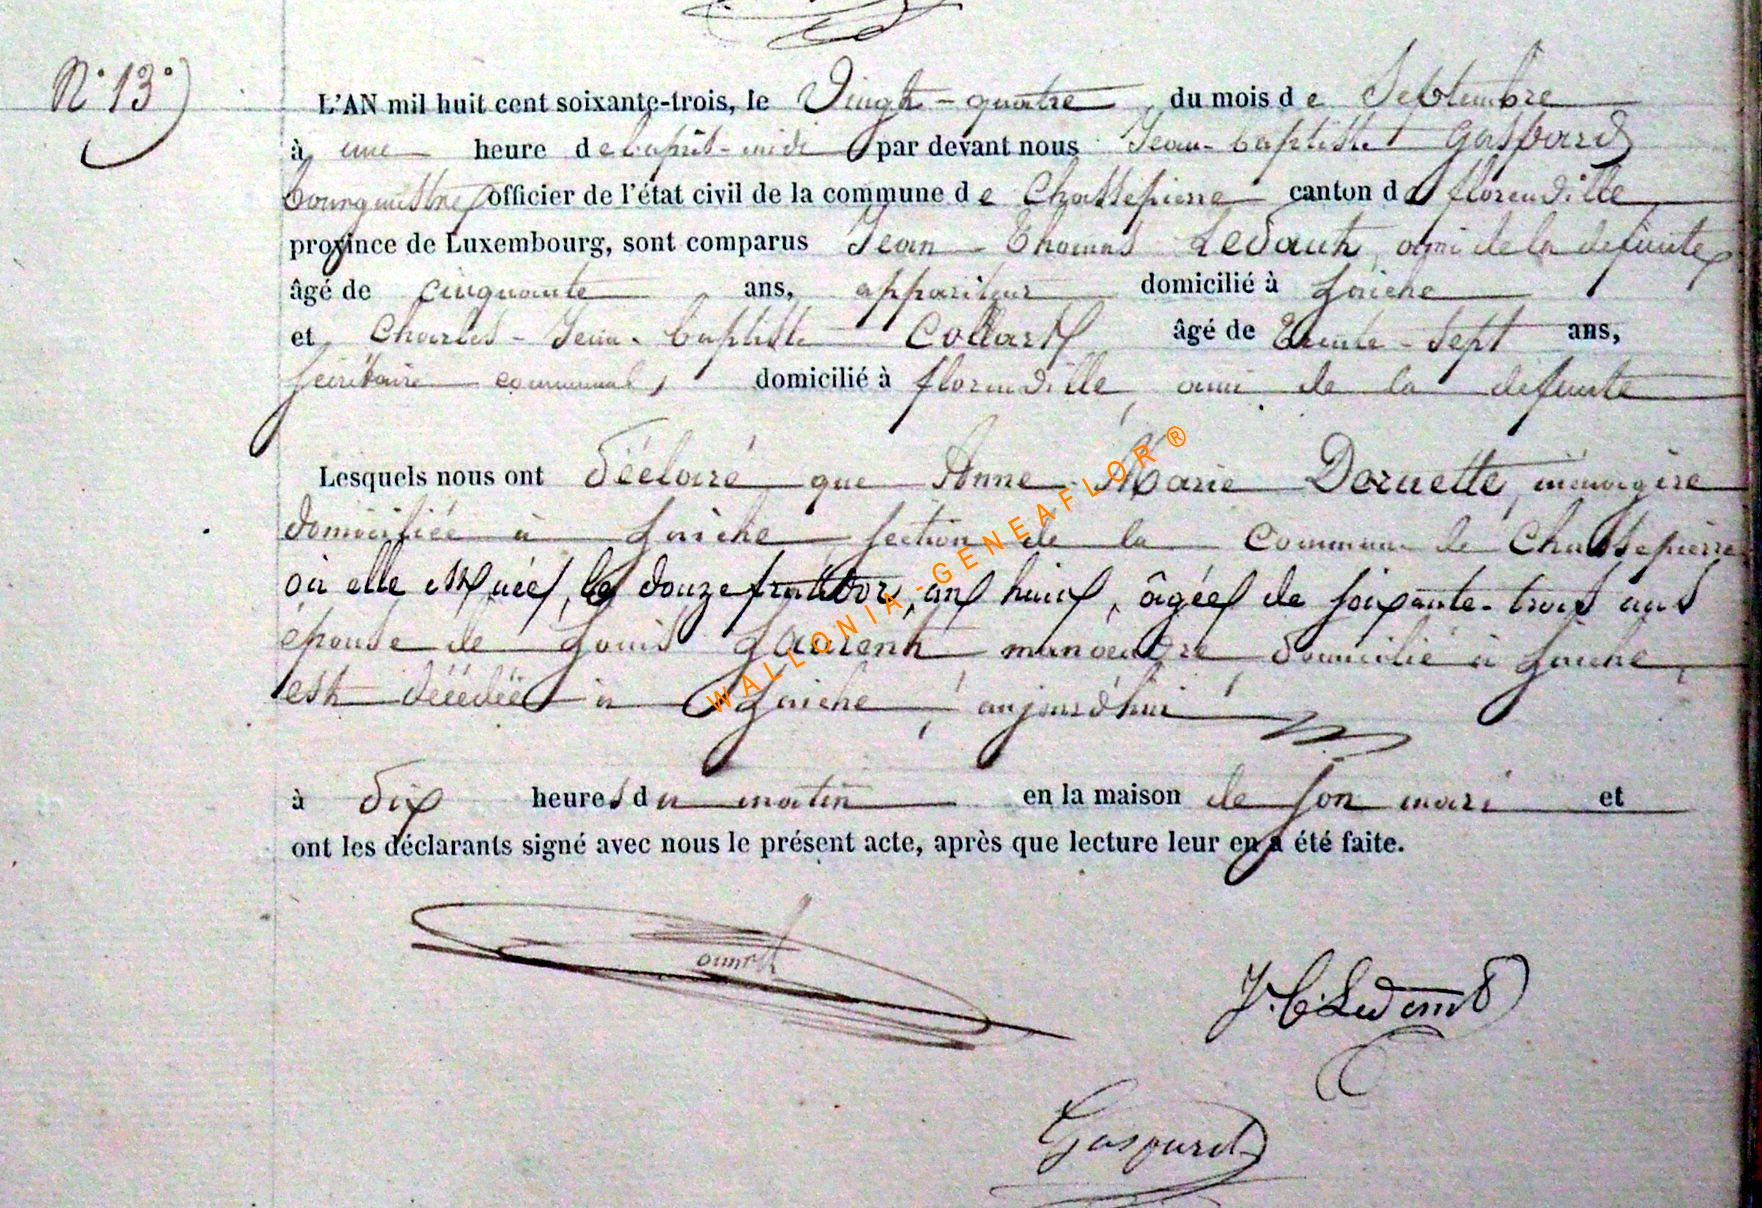 N° 13°
L'AN mil huit cent soixante-trois, le Vingt-quatre du mois de Septembre
à une heure de l'après-midi par devant nous Jean-baptiste Gaspard
bourgmestre officier de l'état civil de la commune de Chassepierre canton de florenville
province de Luxembourg, sont comparus Jean-Thomas Ledant, ami de la defunte
âgé de cinquante ans, appariteur domicilié à Laiche
et Charles-Jean-baptiste Collart âgé de Trente-Sept ans,
secrétaire communal, domicilié à florenville, ami de la defunte
Lesquels nous ont déclaré que Anne-Marie Deruette, ménagère
domiciliée à Laiche, section de la commune de Chassepierre
où elle est née, le douze fructidor, an huit, âgée de soixante-trois ans
épouse de Louis Laurent manoeuvre, domicilié à Laiche,
est décédée à Laiche, aujourd'hui
à dix heures du matin en la maison de son mari et
ont les déclarants signé avec nous le présent acte, après que lecture leur en a été faite.
WALLONIA-GENEAFLOR®
Gaspard